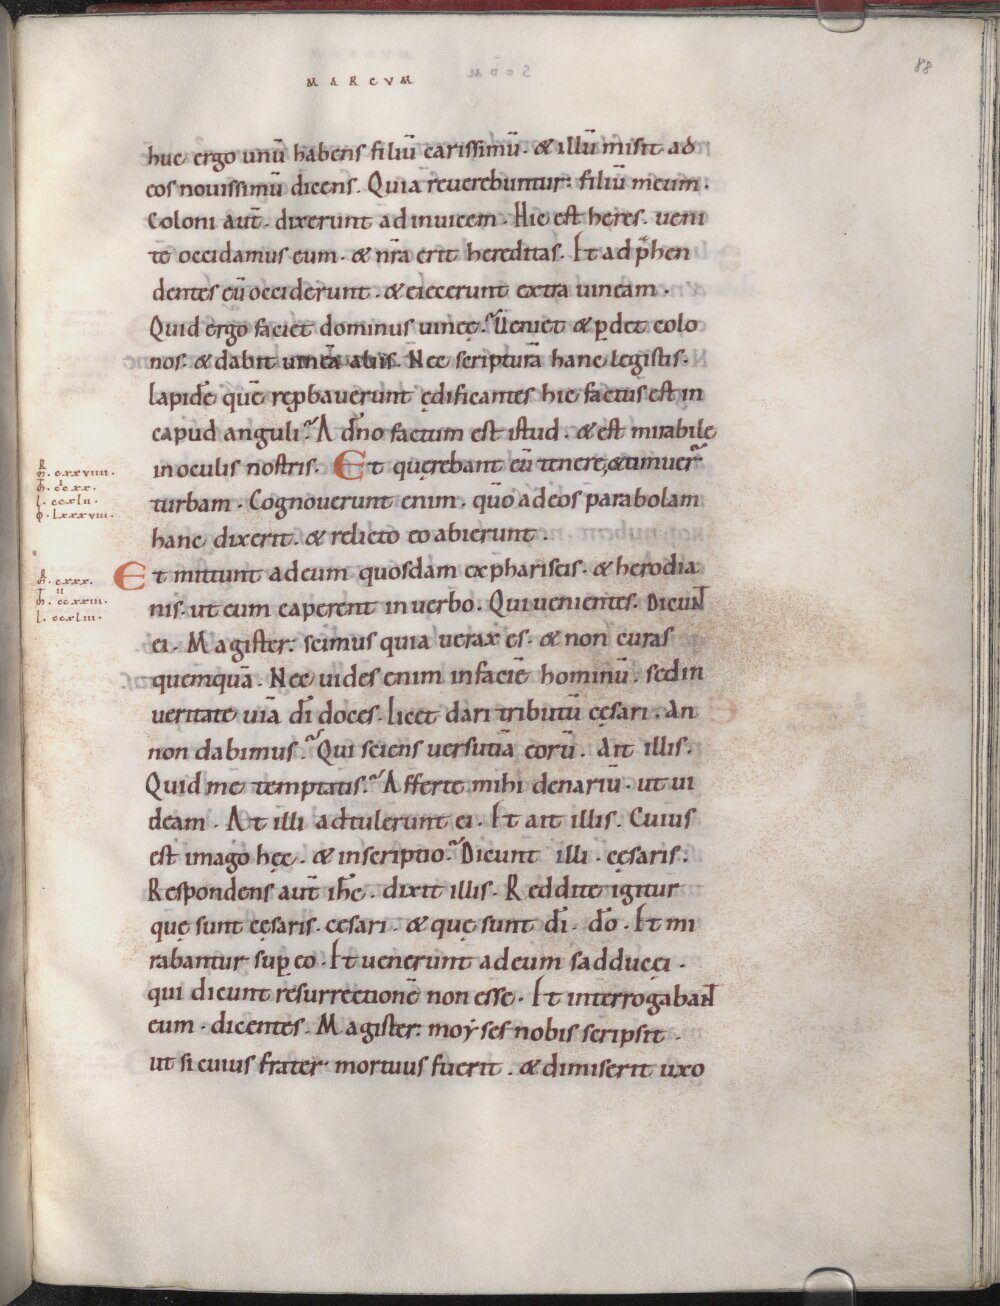 MARCVM
88
huc ergo unū habens filiū carissimū. & illū misit ad
eos nouissimū dicens. Quia reuerebuntur: filiū meum.
Coloni aut̄. dixerunt adinuicem. Hic est heres. ueni
te occidamus eum. & nr̄a erit hereditas. Et adp̄hen
dentes eū occiderunt. & eiecerunt extra uineam.
Quid ergo faciet dominus uineę? Ueniet & ꝑdet colo
nos. & dabit uineā aliis. Nec scripturā hanc legistis.
lapidē quē reprobauerunt ędificantes hic factus est in
capud anguli? A dn̄o factum est istud. & est mirabile
in oculis nostris. Et quęrebant eū tenere, & timuer̄
turbam. Cognouerunt enim. quō adeos parabolam
hanc dixerit. & relicto eo abierunt.
Et mittunt adeum quosdam expharisęis. & herodia
nis. ut eum caperent inuerbo. Qui uenientes. Dicunt
ei. Magister: scimus quia uerax es. & non curas
quemquā. Nec uides enim infaciē hominū. sedin
ueritate uiā dī doces. licet dari tributū cęsari. An
non dabimus? Qui sciens uersutiā eorū. Ait illis.
Quid me temptatis? Afferte mihi denariū. ut ui
deam. At illi adtulerunt ei. Et ait illis. Cuius
est imago hęc. & inscriptio? Dicunt illi. cęsaris.
Respondens aut̄ ih̄c. dixit illis. Reddite igitur
quę sunt cęsaris. cęsari. & quę sunt dī. dō. Et mi
rabantur suꝑ eo. Et uenerunt adeum sadducęi.
qui dicunt resurrectionē non esse. Et interrogabant
eum. dicentes. Magister: moẏses nobis scripsit.
ut si cuius frater mortuus fuerit. & dimiserit uxo